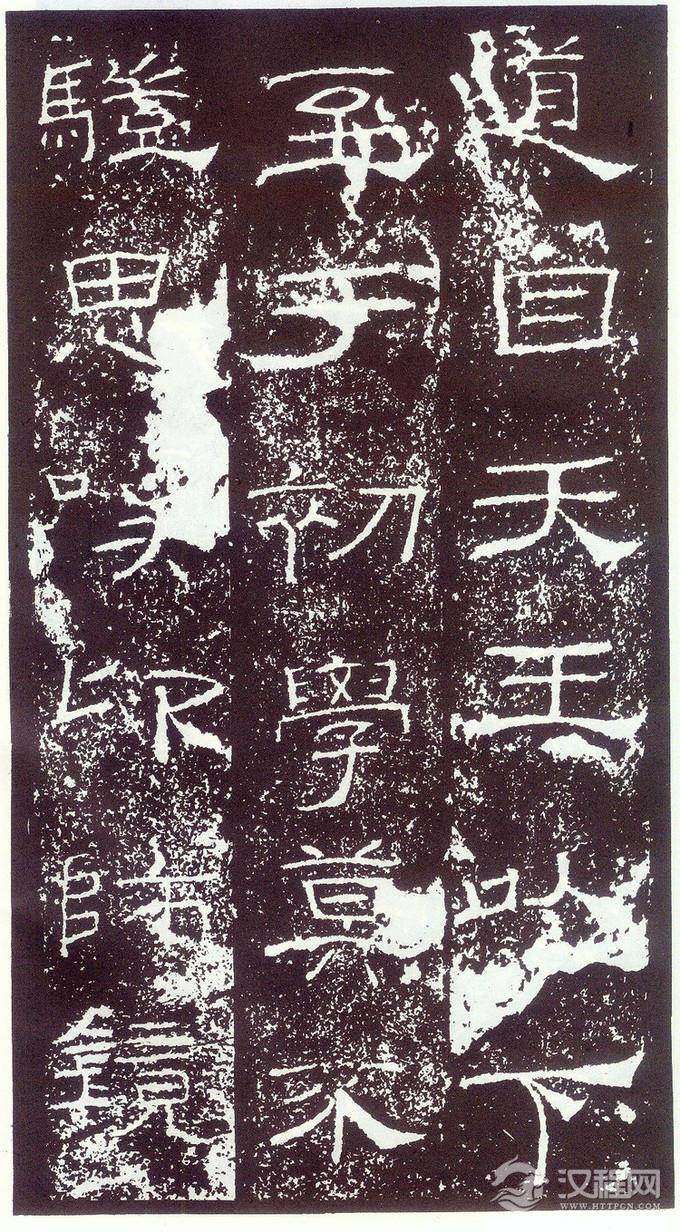 道自天王以下
至于初學莫不
思嘆卬師鏡
汉程网
WWW.HTTPCN.COM